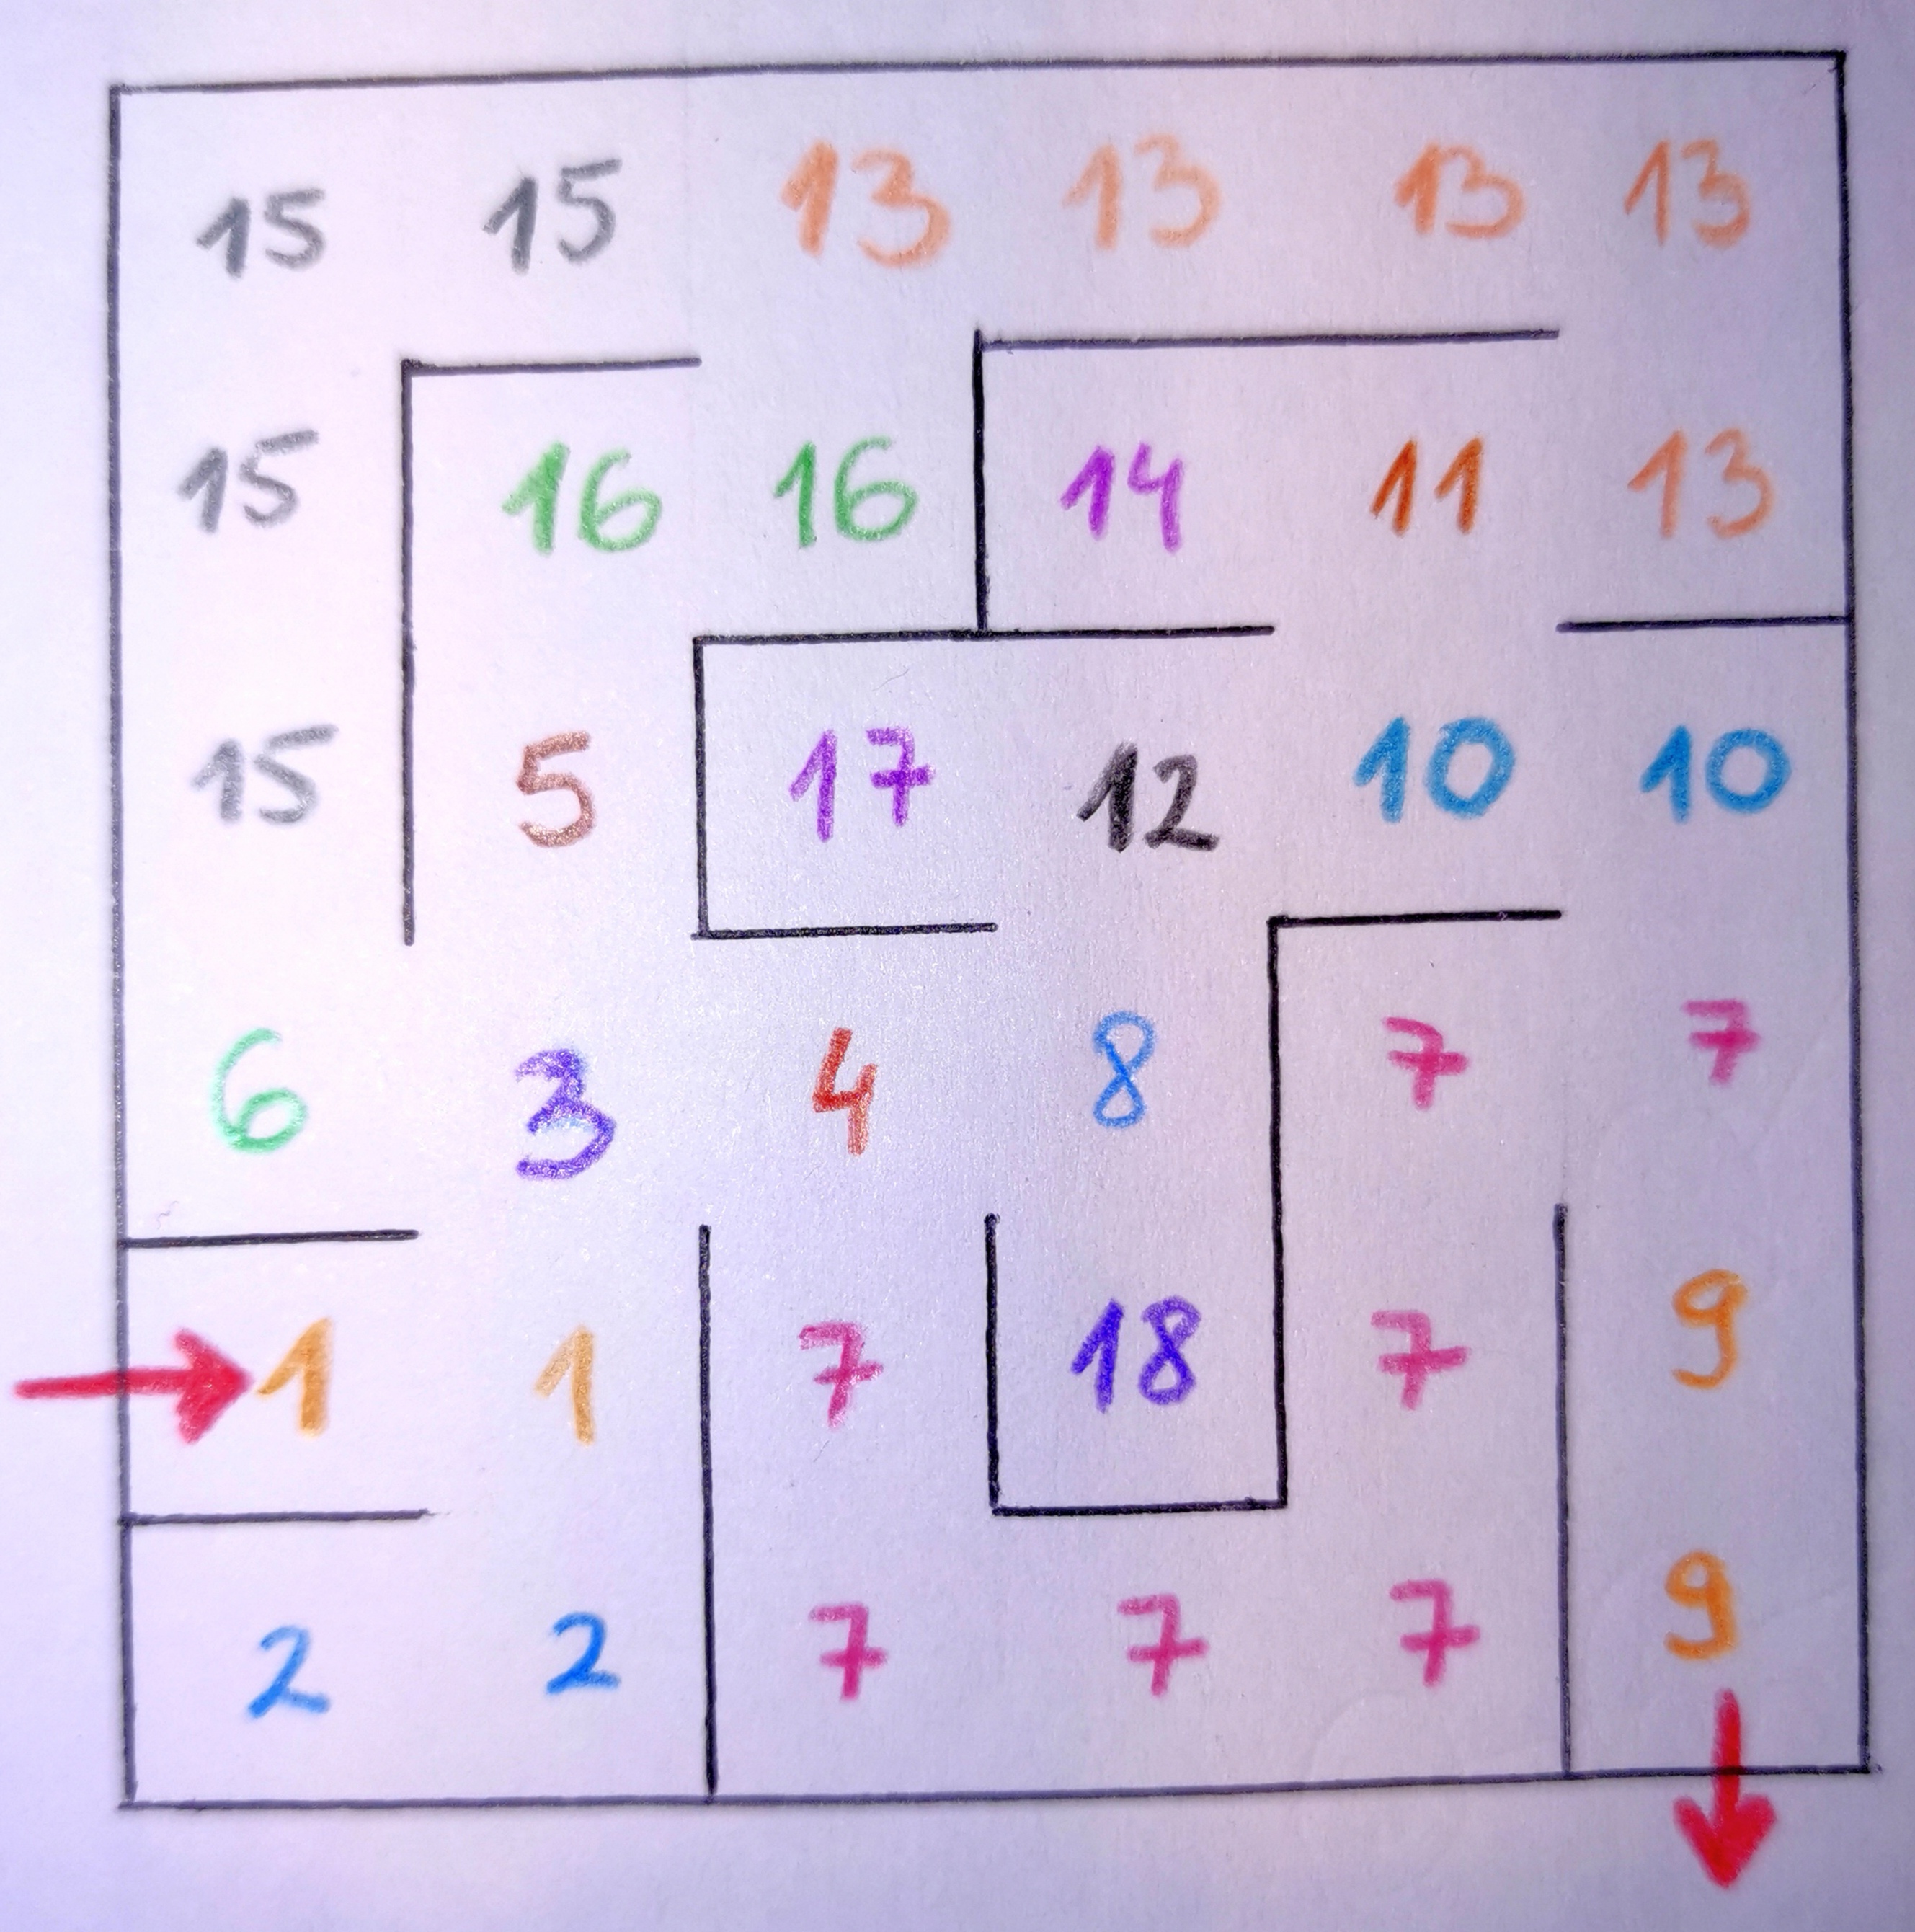 15 15 13 13 13 13
15 16 16 14 11 13
15 5 17 12 10 10
6 3 4 8 7 7
1 1 7 18 7 9
2 2 7 7 7 9